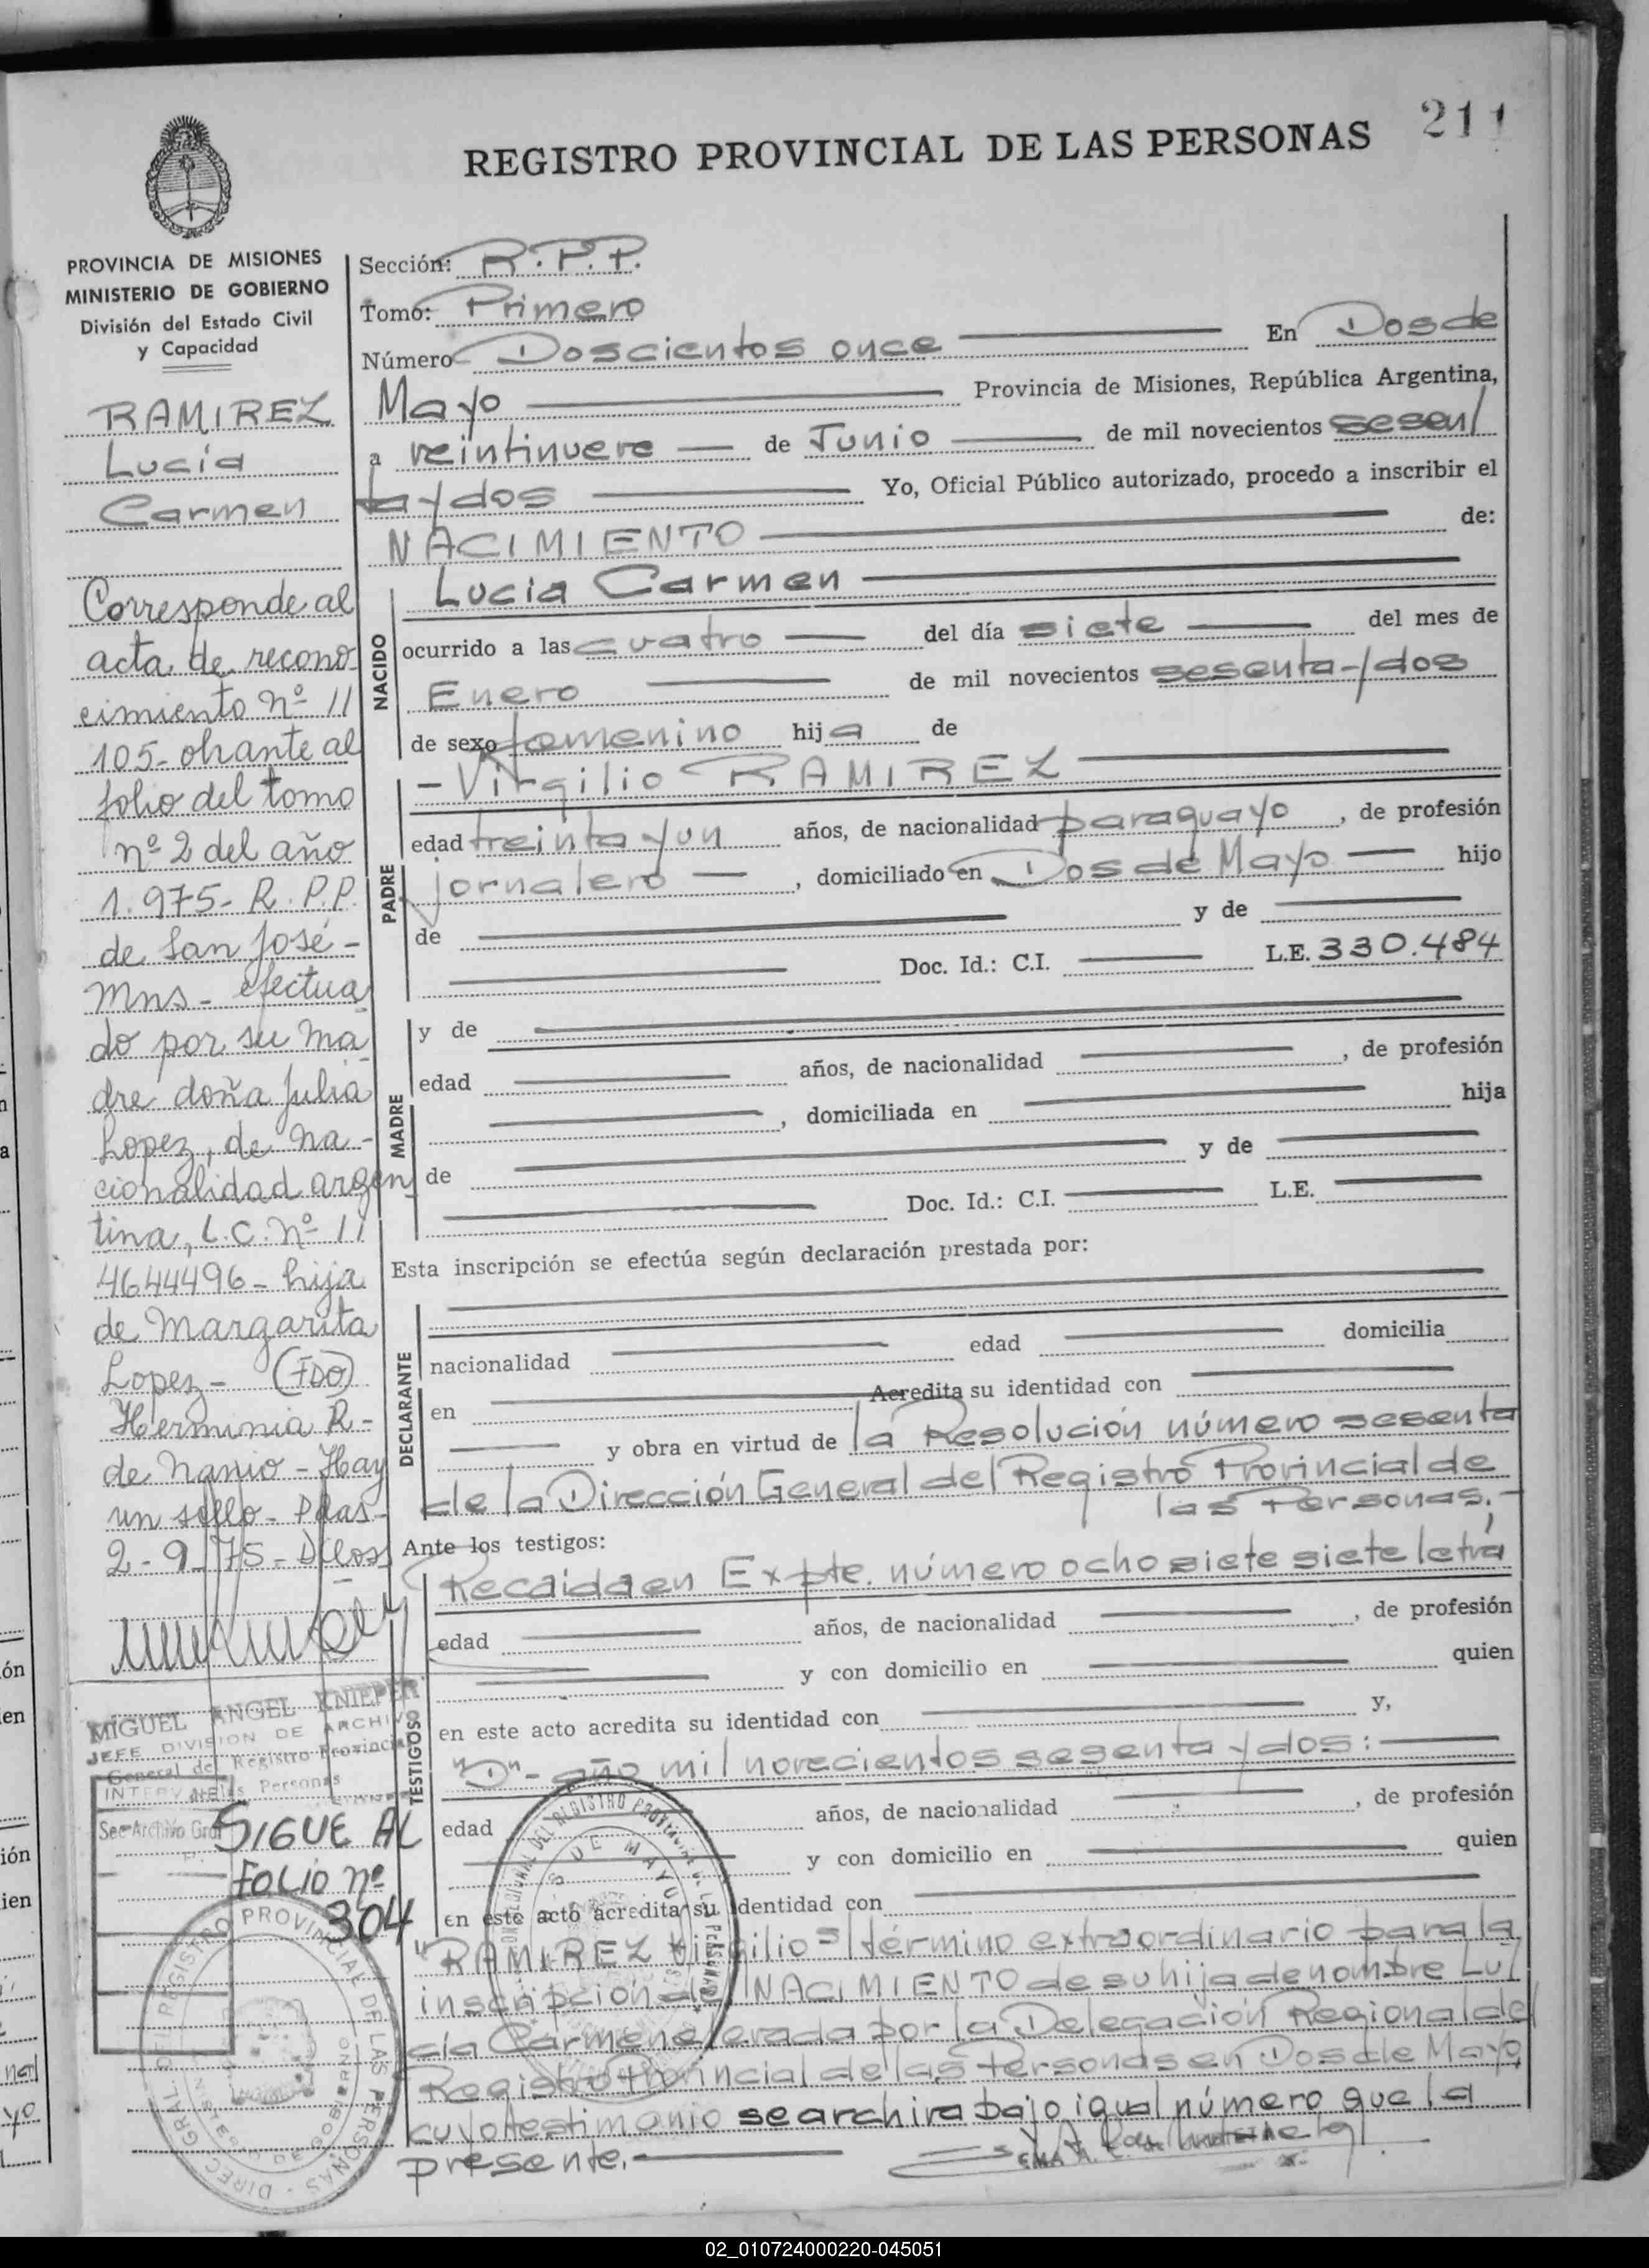 211
REGISTRO PROVINCIAL DE LAS PERSONAS
PROVINCIA DE MISIONES
MINISTERIO DE GOBIERNO
División del Estado Civil
y Capacidad
RAMIREZ
Lucía
Carmen
Corresponde al
acta de recono
cimiento nº 11
105- obrante al
folio del tomo
nº 2 del año
1.975- R.P.P.
de San José-
Mns- efectua
do por su ma
dre doña Julia
Lopez, de na-
cionalidad argen
tina, L.C. nº 11
4644496- hija
de Margarita
Lopez- (FDO)
Herminia R-
de - Hay
un sello- Pdas-
2-9-75-
MIGUEL ANGEL KNIEPER
JEFE DIVISION DE ARCHIVO
General del Registro Provincial
de las Personas
Sec Archivo Gral
SIGUE AL
FOLIO nº
304
Sección: R.P.P.
Tomo: Primero
Número Doscientos once En Dos de
Mayo Provincia de Misiones, República Argentina,
a veintinueve de Junio de mil novecientos sesen/
ta y dos Yo, Oficial Público autorizado, procedo a inscribir el
NACIMIENTO de:
NACIDO
Lucia Carmen
ocurrido a las cuatro del día siete del mes de
Enero de mil novecientos sesenta y dos
de sexo femenino hija de
PADRE
- Virgilio RAMIREZ
edad treinta y un años, de nacionalidad paraguayo, de profesión
jornalero, domiciliado en Dos de Mayo hijo
de y de
Doc. Id.: C.I. L.E. 330.484
MADRE
y de
edad años, de nacionalidad , de profesión
, domiciliada en hija
de y de
Doc. Id.: C.I. L.E.
Esta inscripción se efectúa según declaración prestada por:
DECLARANTE
nacionalidad edad domicilia
en Acredita su identidad con
y obra en virtud de la Resolución número sesenta
de la Dirección General del Registro Provincial de
las Personas.-
Ante los testigos:
TESTIGOS
Recaida en Expte. número ocho siete siete letra
edad años, de nacionalidad , de profesión
y con domicilio en quien
en este acto acredita su identidad con y,
"D"- año mil novecientos sesenta y dos:
edad años, de nacionalidad , de profesión
y con domicilio en quien
en este acto acredita su identidad con
"RAMIREZ Virgilio s/término extraordinario para la
inscripción de NACIMIENTO de su hija de nombre Lu/
cía Carmen elevada por la Delegación Regional del
Registro Provincial de las Personas en Dos de Mayo,
cuyo testimonio se archiva bajo igual número que la
presente.-
DIREC. GRAL. DEL REGISTRO PROVINCIAL DE LAS PERSONAS
02_010724000220-045051